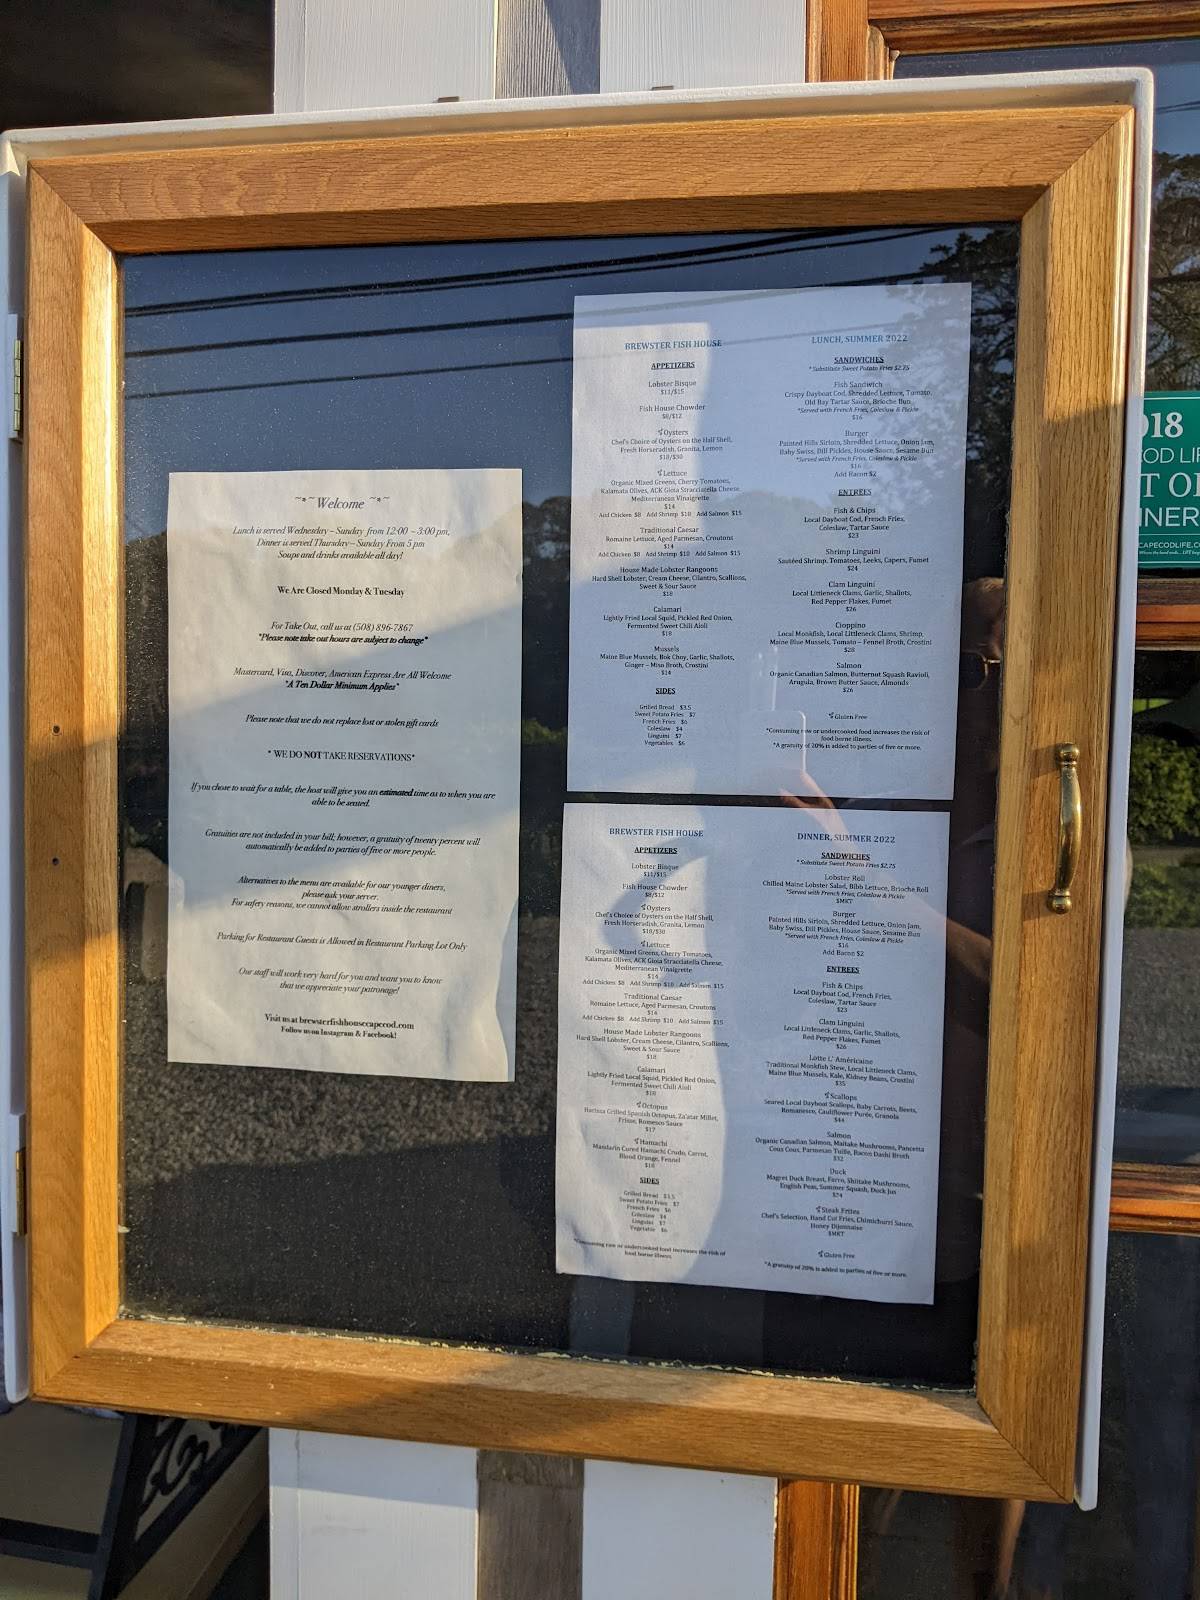 ~*~ Welcome ~*~
Lunch is served Wednesday – Sunday from 12:00 – 3:00 pm,
Dinner is served Thursday – Sunday From 5 pm
Soups and drinks available all day!
We Are Closed Monday & Tuesday
For Take Out, call us at (508) 896-7867
*Please note take out hours are subject to change*
Mastercard, Visa, Discover, American Express Are All Welcome
*A Ten Dollar Minimum Applies*
Please note that we do not replace lost or stolen gift cards
* WE DO NOT TAKE RESERVATIONS*
If you chose to wait for a table, the host will give you an estimated time as to when you are
able to be seated.
Gratuities are not included in your bill; however, a gratuity of twenty percent will
automatically be added to parties of five or more people.
Alternatives to the menu are available for our younger diners,
please ask your server.
For safety reasons, we cannot allow strollers inside the restaurant
Parking for Restaurant Guests is Allowed in Restaurant Parking Lot Only
Our staff will work very hard for you and want you to know
that we appreciate your patronage!
Visit us at brewsterfishhousecapecod.com
Follow us on Instagram & Facebook!
BREWSTER FISH HOUSE
APPETIZERS
Lobster Bisque
$11/$15
Fish House Chowder
$8/$12
Oysters
Chef's Choice of Oysters on the Half Shell,
Fresh Horseradish, Granita, Lemon
$18/$30
Lettuce
Organic Mixed Greens, Cherry Tomatoes,
Kalamata Olives, ACK Gioia Stracciatella Cheese,
Mediterranean Vinaigrette
$14
Add Chicken $8 Add Shrimp $10 Add Salmon $15
Traditional Caesar
Romaine Lettuce, Aged Parmesan, Croutons
$14
Add Chicken $8 Add Shrimp $10 Add Salmon $15
House Made Lobster Rangoons
Hard Shell Lobster, Cream Cheese, Cilantro, Scallions,
Sweet & Sour Sauce
$18
Calamari
Lightly Fried Local Squid, Pickled Red Onion,
Fermented Sweet Chili Aioli
$18
Mussels
Maine Blue Mussels, Bok Choy, Garlic, Shallots,
Ginger – Miso Broth, Crostini
$14
SIDES
Grilled Bread $3.5
Sweet Potato Fries $7
French Fries $6
Coleslaw $4
Linguini $7
Vegetables $6
LUNCH, SUMMER 2022
SANDWICHES
*Substitute Sweet Potato Fries $2.75
Fish Sandwich
Crispy Dayboat Cod, Shredded Lettuce, Tomato,
Old Bay Tartar Sauce, Brioche Bun
*Served with French Fries, Coleslaw & Pickle
$16
Burger
Painted Hills Sirloin, Shredded Lettuce, Onion Jam,
Baby Swiss, Dill Pickles, House Sauce, Sesame Bun
*Served with French Fries, Coleslaw & Pickle
$16
Add Bacon $2
ENTREES
Fish & Chips
Local Dayboat Cod, French Fries,
Coleslaw, Tartar Sauce
$23
Shrimp Linguini
Sautéed Shrimp, Tomatoes, Leeks, Capers, Fumet
$24
Clam Linguini
Local Littleneck Clams, Garlic, Shallots,
Red Pepper Flakes, Fumet
$26
Cioppino
Local Monkfish, Local Littleneck Clams, Shrimp,
Maine Blue Mussels, Tomato – Fennel Broth, Crostini
$28
Salmon
Organic Canadian Salmon, Butternut Squash Ravioli,
Arugula, Brown Butter Sauce, Almonds
$26
Gluten Free
*Consuming raw or undercooked food increases the risk of
food borne illness.
*A gratuity of 20% is added to parties of five or more.
BREWSTER FISH HOUSE
APPETIZERS
Lobster Bisque
$11/$15
Fish House Chowder
$8/$12
Oysters
Chef's Choice of Oysters on the Half Shell,
Fresh Horseradish, Granita, Lemon
$18/$30
Lettuce
Organic Mixed Greens, Cherry Tomatoes,
Kalamata Olives, ACK Gioia Stracciatella Cheese,
Mediterranean Vinaigrette
$14
Add Chicken $8 Add Shrimp $10 Add Salmon $15
Traditional Caesar
Romaine Lettuce, Aged Parmesan, Croutons
$14
Add Chicken $8 Add Shrimp $10 Add Salmon $15
House Made Lobster Rangoons
Hard Shell Lobster, Cream Cheese, Cilantro, Scallions,
Sweet & Sour Sauce
$18
Calamari
Lightly Fried Local Squid, Pickled Red Onion,
Fermented Sweet Chili Aioli
$18
Octopus
Harissa Grilled Spanish Octopus, Za'atar Millet,
Frisse, Romesco Sauce
$17
Hamachi
Mandarin Cured Hamachi Crudo, Carrot,
Blood Orange, Fennel
$18
SIDES
Grilled Bread $3.5
Sweet Potato Fries $7
French Fries $6
Coleslaw $4
Linguini $7
Vegetable $6
*Consuming raw or undercooked food increases the risk of
food borne illness.
DINNER, SUMMER 2022
SANDWICHES
*Substitute Sweet Potato Fries $2.75
Lobster Roll
Chilled Maine Lobster Salad, Bibb Lettuce, Brioche Roll
*Served with French Fries, Coleslaw & Pickle
$MKT
Burger
Painted Hills Sirloin, Shredded Lettuce, Onion Jam,
Baby Swiss, Dill Pickles, House Sauce, Sesame Bun
*Served with French Fries, Coleslaw & Pickle
$16
Add Bacon $2
ENTREES
Fish & Chips
Local Dayboat Cod, French Fries,
Coleslaw, Tartar Sauce
$23
Clam Linguini
Local Littleneck Clams, Garlic, Shallots,
Red Pepper Flakes, Fumet
$26
Lotte L' Américaine
Traditional Monkfish Stew, Local Littleneck Clams,
Maine Blue Mussels, Kale, Kidney Beans, Crostini
$35
Scallops
Seared Local Dayboat Scallops, Baby Carrots, Beets,
Romanesco, Cauliflower Purée, Granola
$44
Salmon
Organic Canadian Salmon, Maitake Mushrooms, Pancetta
Cous Cous, Parmesan Tuille, Bacon Dashi Broth
$32
Duck
Magret Duck Breast, Farro, Shiitake Mushrooms,
English Peas, Summer Squash, Duck Jus
$34
Steak Frites
Chef's Selection, Hand Cut Fries, Chimichurri Sauce,
Honey Dijonnaise
$MKT
Gluten Free
*A gratuity of 20% is added to parties of five or more.
018
OD LIF
T OF
NER
CAPECODLIFE.CO